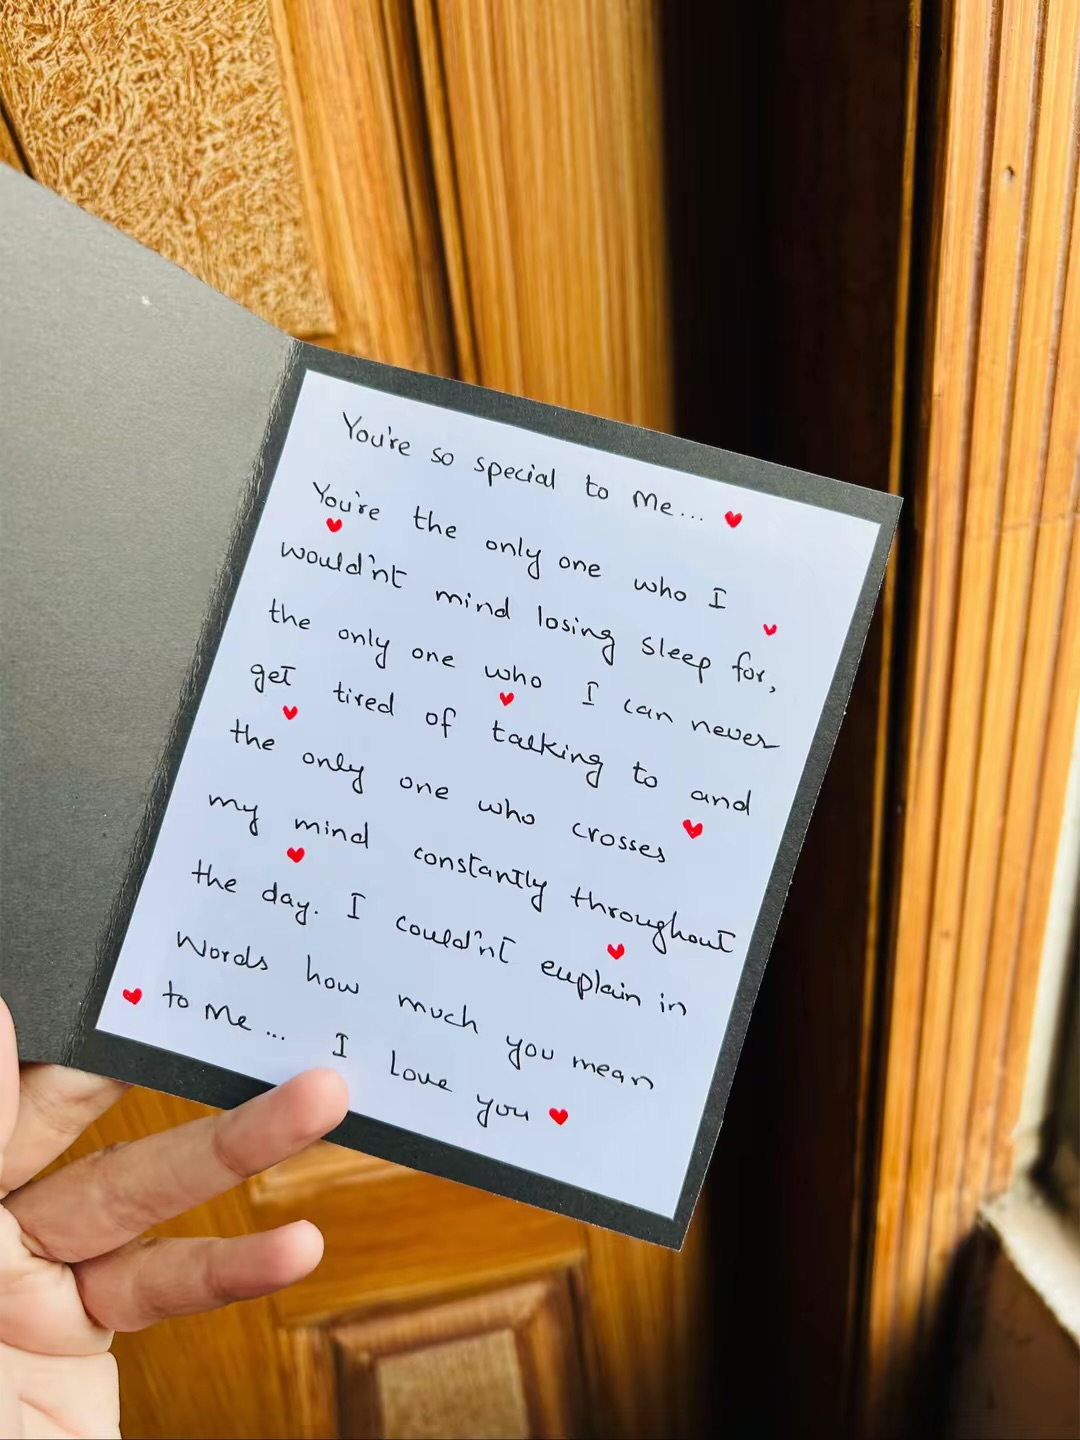 You're so special to Me... ♥
You're the only one who I
wouldn't mind losing sleep for,
the only one who I can never
get tired of talking to and
the only one who crosses
my mind constantly throughout
the day. I couldn't explain in
Words how much you mean
to Me... I Love you ♥